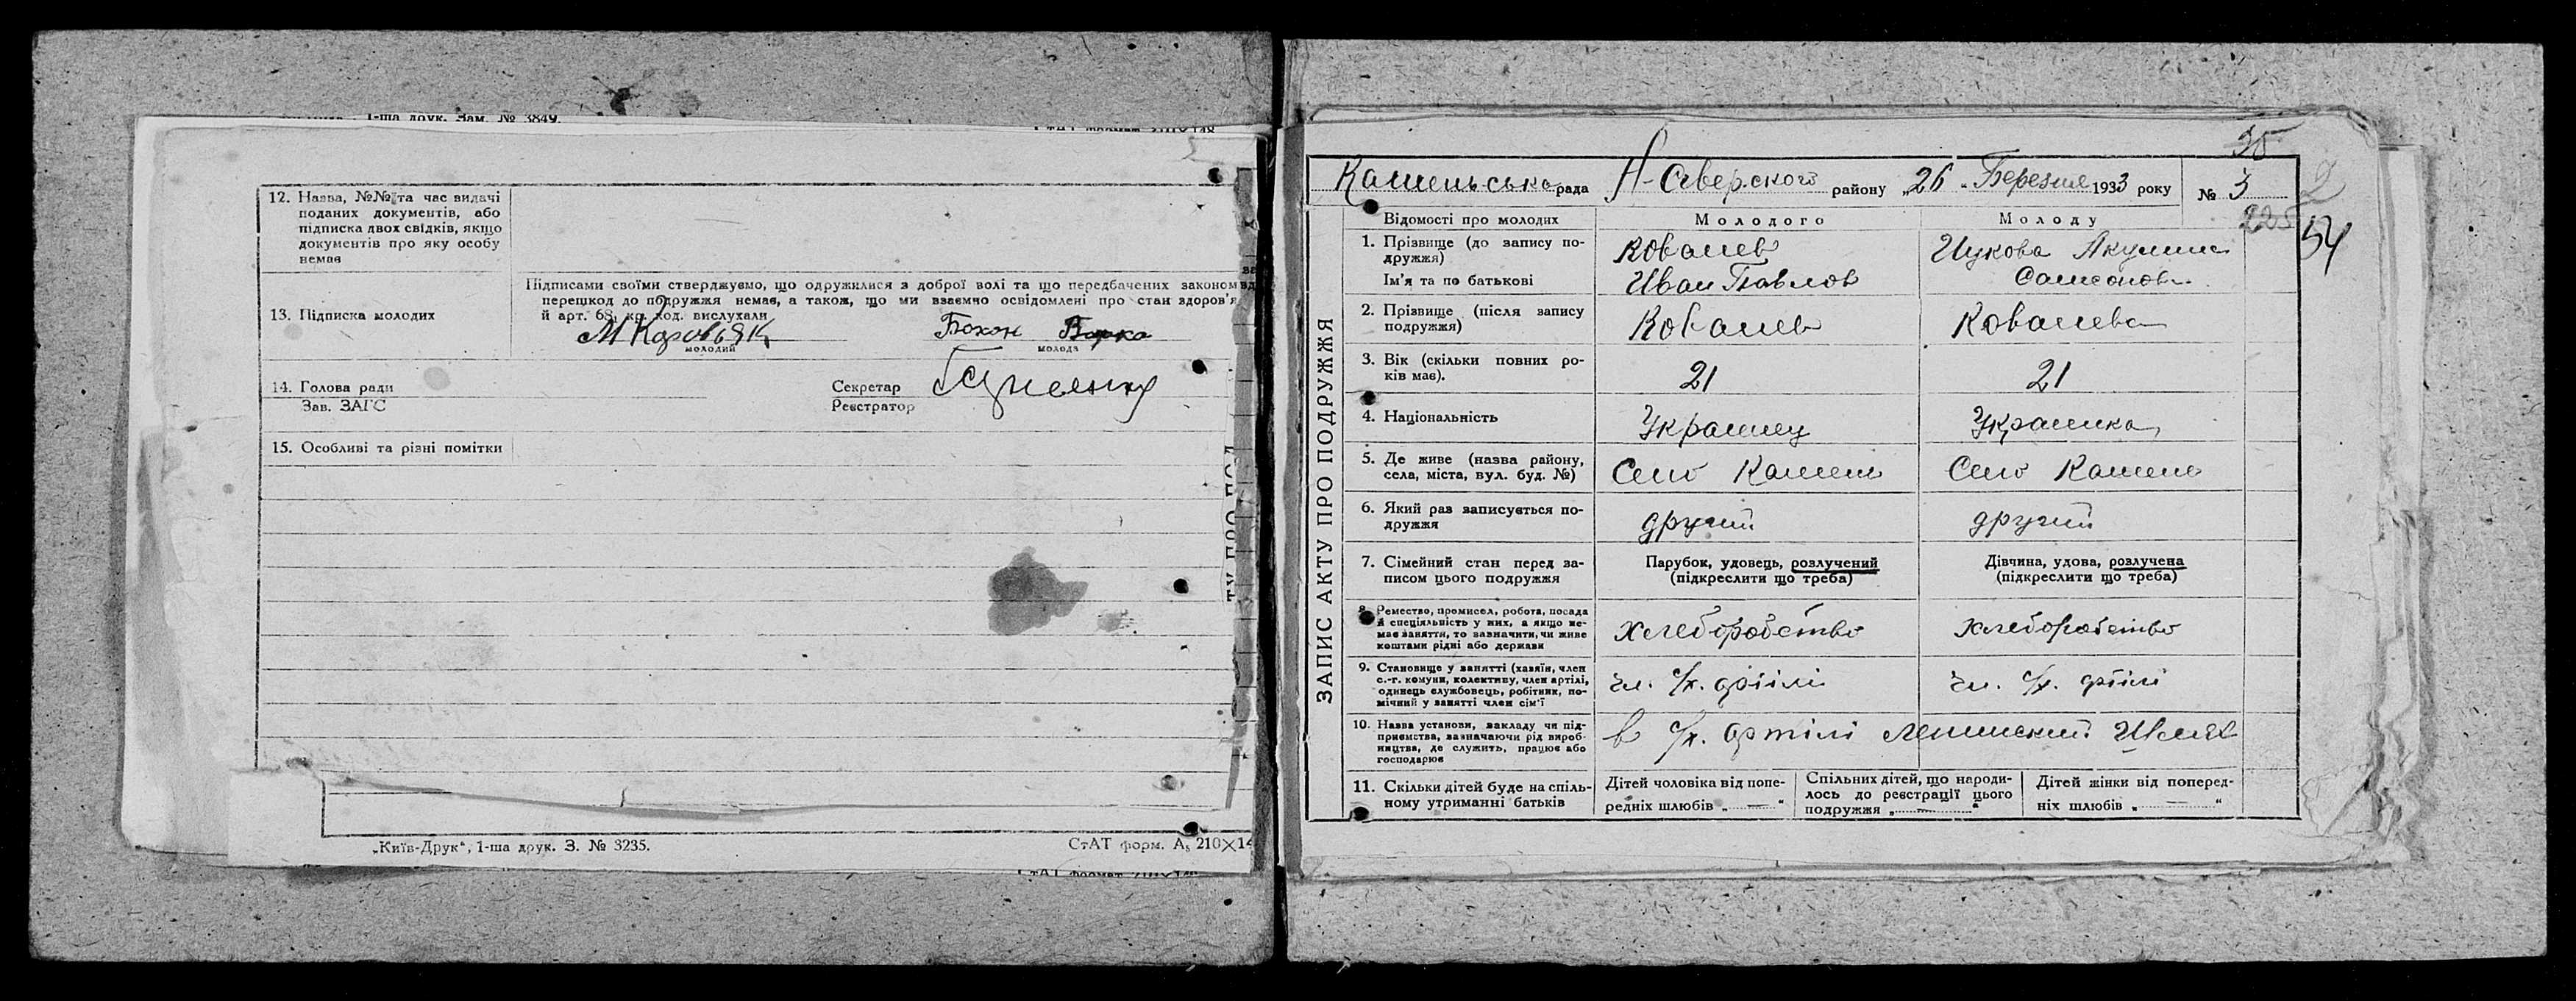 1-ша друк. Зам. № 3849.
12. Назва, №№ та час видачі
поданих документів, або
підписка двох свідків, якщо
документів про яку особу
немає
Підписами своїми стверджуємо, що одружилися з доброї волі та що передбачених законом
перешкод до подружжя немає, а також, що ми взаємно освідомлені про стан здоров'я
й арт. 68, кр. код. вислухали
13. Підписка молодих
молодий
молода
14. Голова ради
Секретар
Зав. ЗАГС
Реєстратор
15. Особливі та різні помітки
„Київ-Друк“, 1-ша друк. З. № 3235.
СтАТ форм. А5 210×14
35
Каменьська рада Н-Сіверского району „26„ Березня 1933 року № 3
2
225
54
ЗАПИС АКТУ ПРО ПОДРУЖЖЯ
Відомості про молодих Молодого Молоду
1. Прізвище (до запису по-
дружжя)
Ім'я та по батькові
Ковалев
Иван Павлов
Акулина
Самсонов
2. Прізвище (після запису
подружжя)
Ковалев Ковалева
3. Вік (скільки повних ро-
ків має).
21 21
4. Національність
Украинец Украинка
5. Де живе (назва району,
села, міста, вул. буд. №)
Село Камень Село Камень
6. Який раз записується по-
дружжя
другий другий
7. Сімейний стан перед за-
писом цього подружжя
Парубок, удовець, розлучений
(підкреслити що треба)
Дівчина, удова, розлучена
(підкреслити що треба)
8. Ремество, промисел, робота, посада
й спеціяльність у них, а якщо не-
має заняття, то зазначити, чи живе
коштами рідні або держави
хлеборобство хлеборобство
9. Становище у занятті (хазяїн, член
с.-г. комуни, колективу, член артілі,
одинець службовець, робітник, по-
мічний у занятті член сім'ї
чл. с/х. артілі чл. с/х. артілі
10. Назва установи, закладу чи під-
приємства, зазначаючи рід вироб-
ництва, де служить, працює або
господарює
в с/х. артілі Ленинский Шлях
11. Скільки дітей буде на спіль-
ному утриманні батьків
Дітей чоловіка від попе-
редніх шлюбів „ — “
Спільних дітей, що народи-
лось до реєстрації цього
подружжя „ — “
Дітей жінки від поперед-
ніх шлюбів „ — “